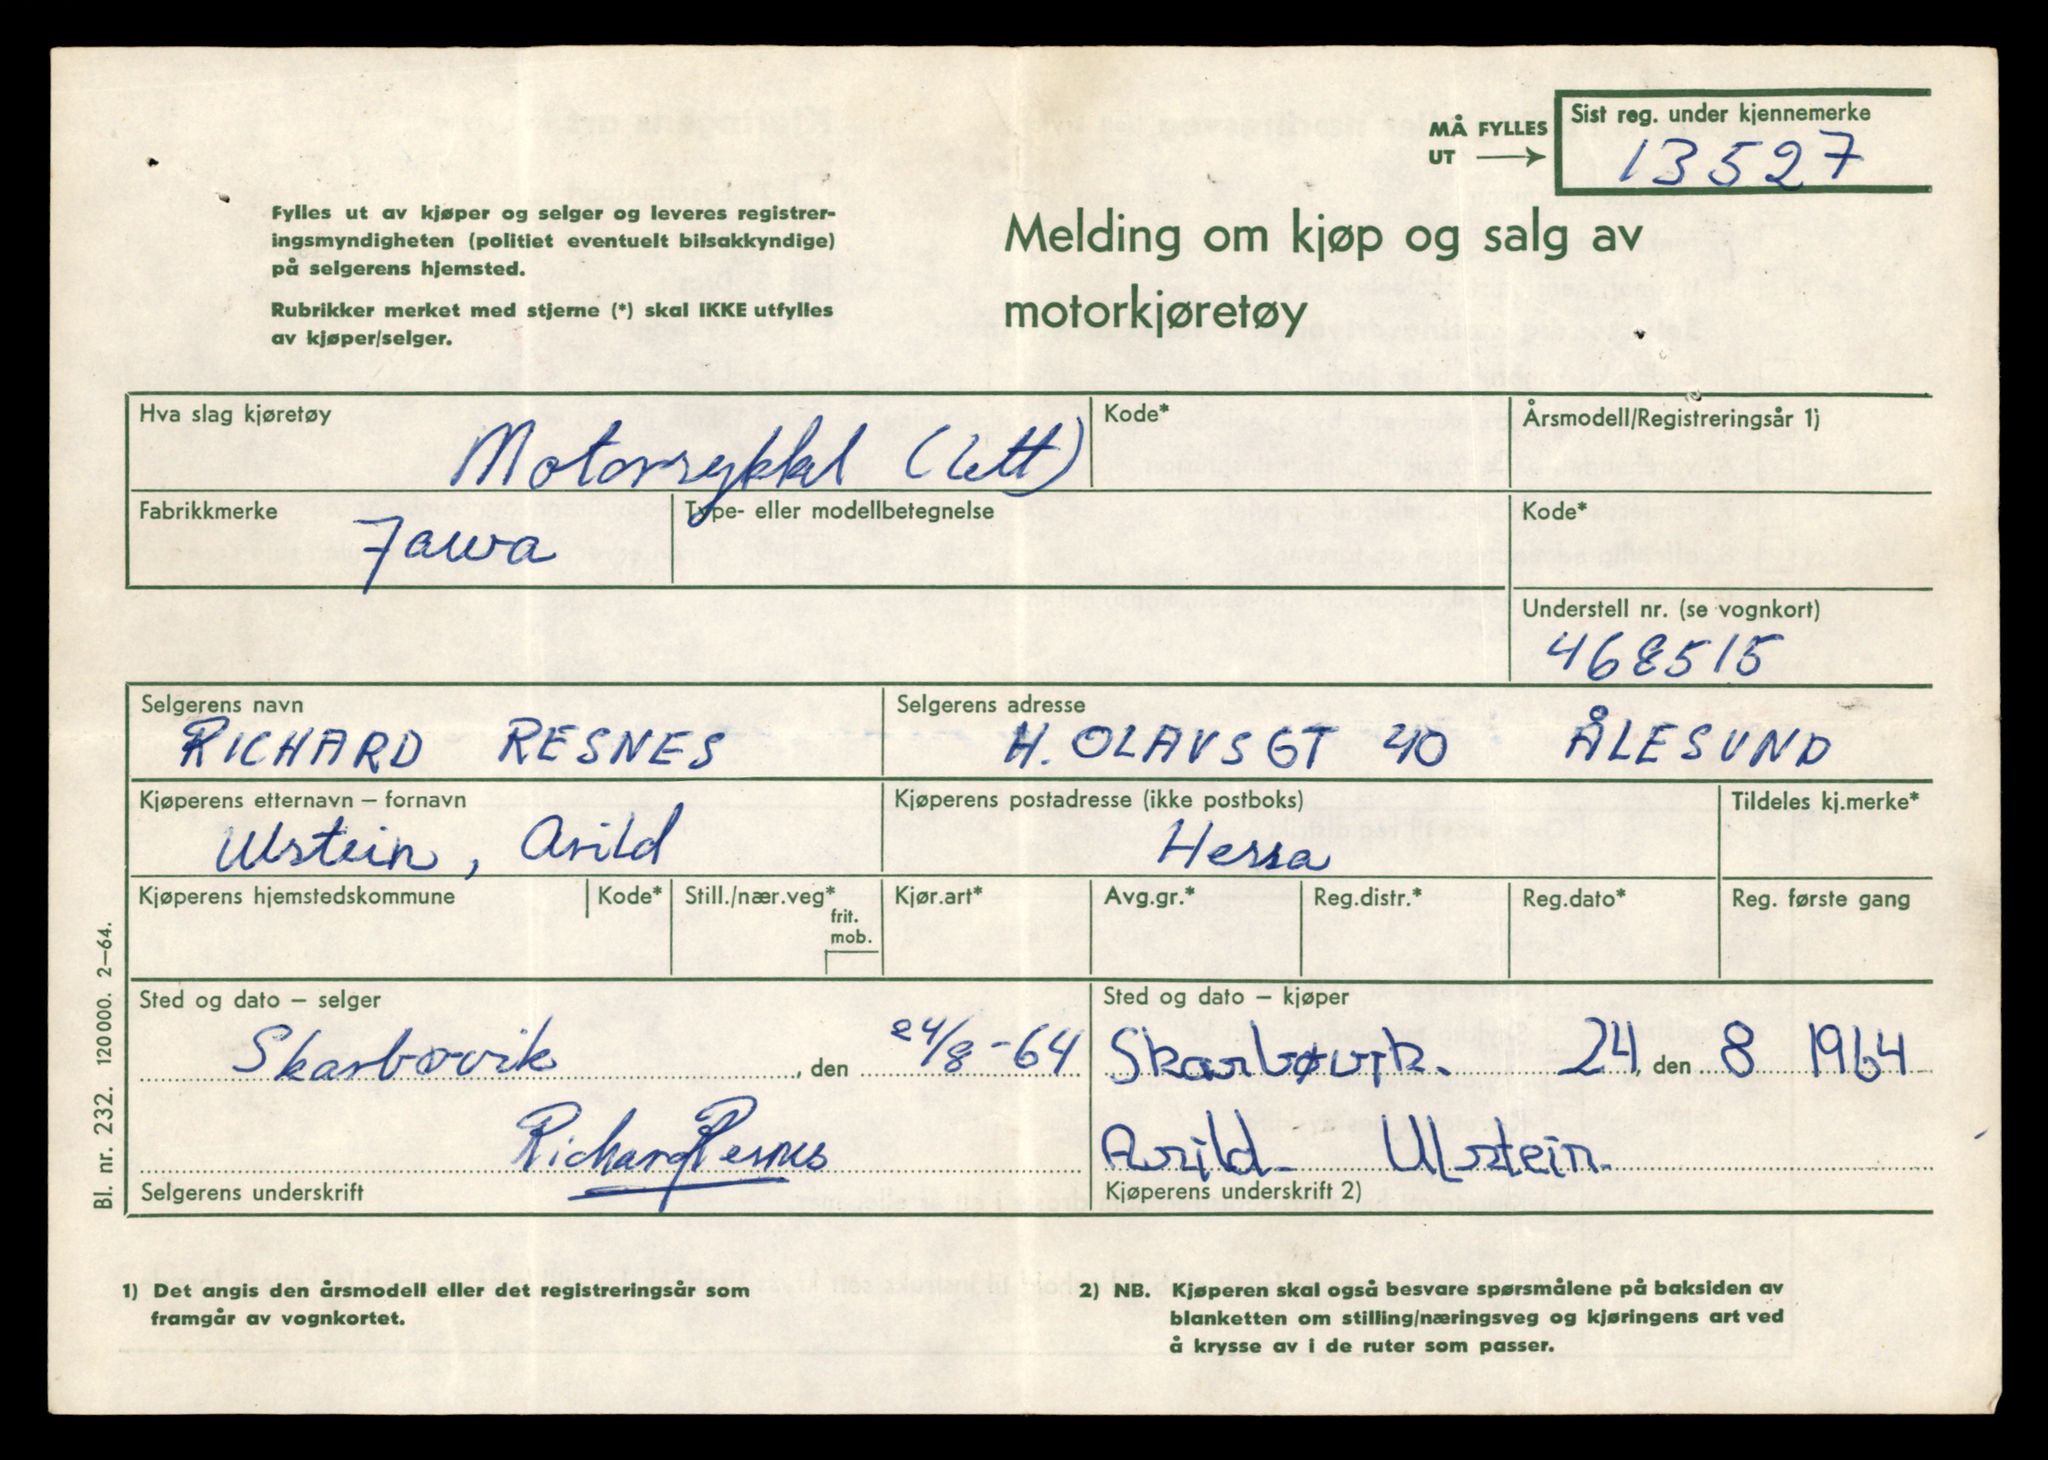 MÅ FYLLES
UT
Sist reg. under kjennemerke
13527
Fylles ut av kjøper og selger og leveres registrer-
ingsmyndigheten (politiet eventuelt bilsakkyndige)
på selgerens hjemsted.
Rubrikker merket med stjerne (*) skal IKKE utfylles
av kjøper/selger.
Melding om kjøp og salg av
motorkjøretøy
Hva slag kjøretøy
Motorsykkel (lett)
Kode*
Årsmodell/Registreringsår 1)
Fabrikkmerke
Jawa
Type- eller modellbetegnelse
Kode*
Understell nr. (se vognkort)
468515
Selgerens navn
RICHARD RESNES
Selgerens adresse
H. OLAVSGT 40 ÅLESUND
Kjøperens etternavn – fornavn
Ulstein, Arild
Kjøperens postadresse (ikke postboks)
Hessa
Tildeles kj.merke*
Kjøperens hjemstedskommune
Kode*
Still./nær.veg*
frit.
mob.
Kjør.art*
Avg.gr.*
Reg.distr.*
Reg.dato*
Reg. første gang
Sted og dato – selger
Skarbøvik, den 24/8-64
Richard Resnes
Selgerens underskrift
Sted og dato – kjøper
Skarbøvik. 24, den 8 1964
Arild Ulstein.
Kjøperens underskrift 2)
Bl. nr. 232. 120000. 2–64.
1) Det angis den årsmodell eller det registreringsår som
framgår av vognkortet.
2) NB. Kjøperen skal også besvare spørsmålene på baksiden av
blanketten om stilling/næringsveg og kjøringens art ved
å krysse av i de ruter som passer.